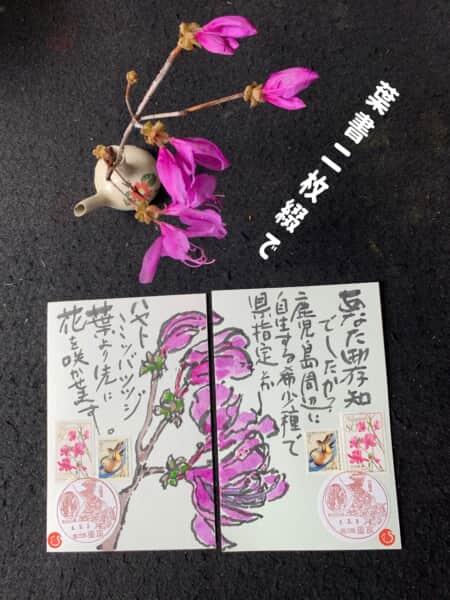 葉書二枚綴で
あなた御存知
でしたか?
鹿児島周辺に
自生する希少種で
県指定
ハヤト
ミツバツツジ
葉より先に
花を咲かせます。